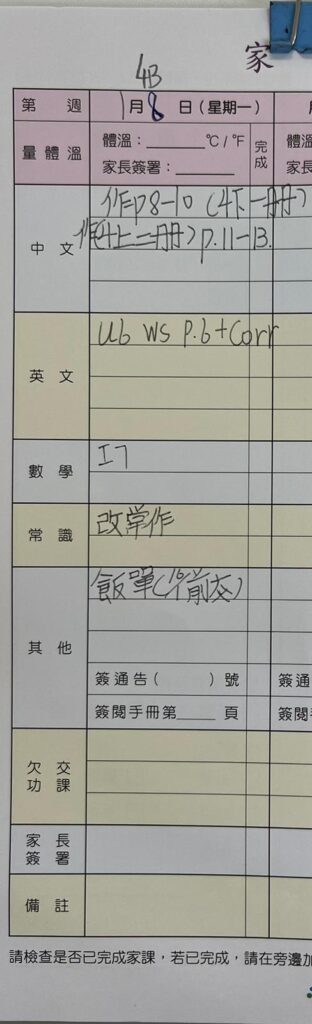 家
4B
第 週 1月8日(星期一)
量體溫 體溫：______℃/℉ 完成 體溫
家長簽署：______ 家長
中文 作P8-10 (4下一冊)
作(4上二冊) P.11-13.
英文 U6 WS P.6+Corr
數學 工7
常識 改常作
其他 飯單(10/1前交)
簽通告( )號 簽通
簽閱手冊第_____頁 簽閱
欠交功課
家長簽署
備註
請檢查是否已完成家課，若已完成，請在旁邊加